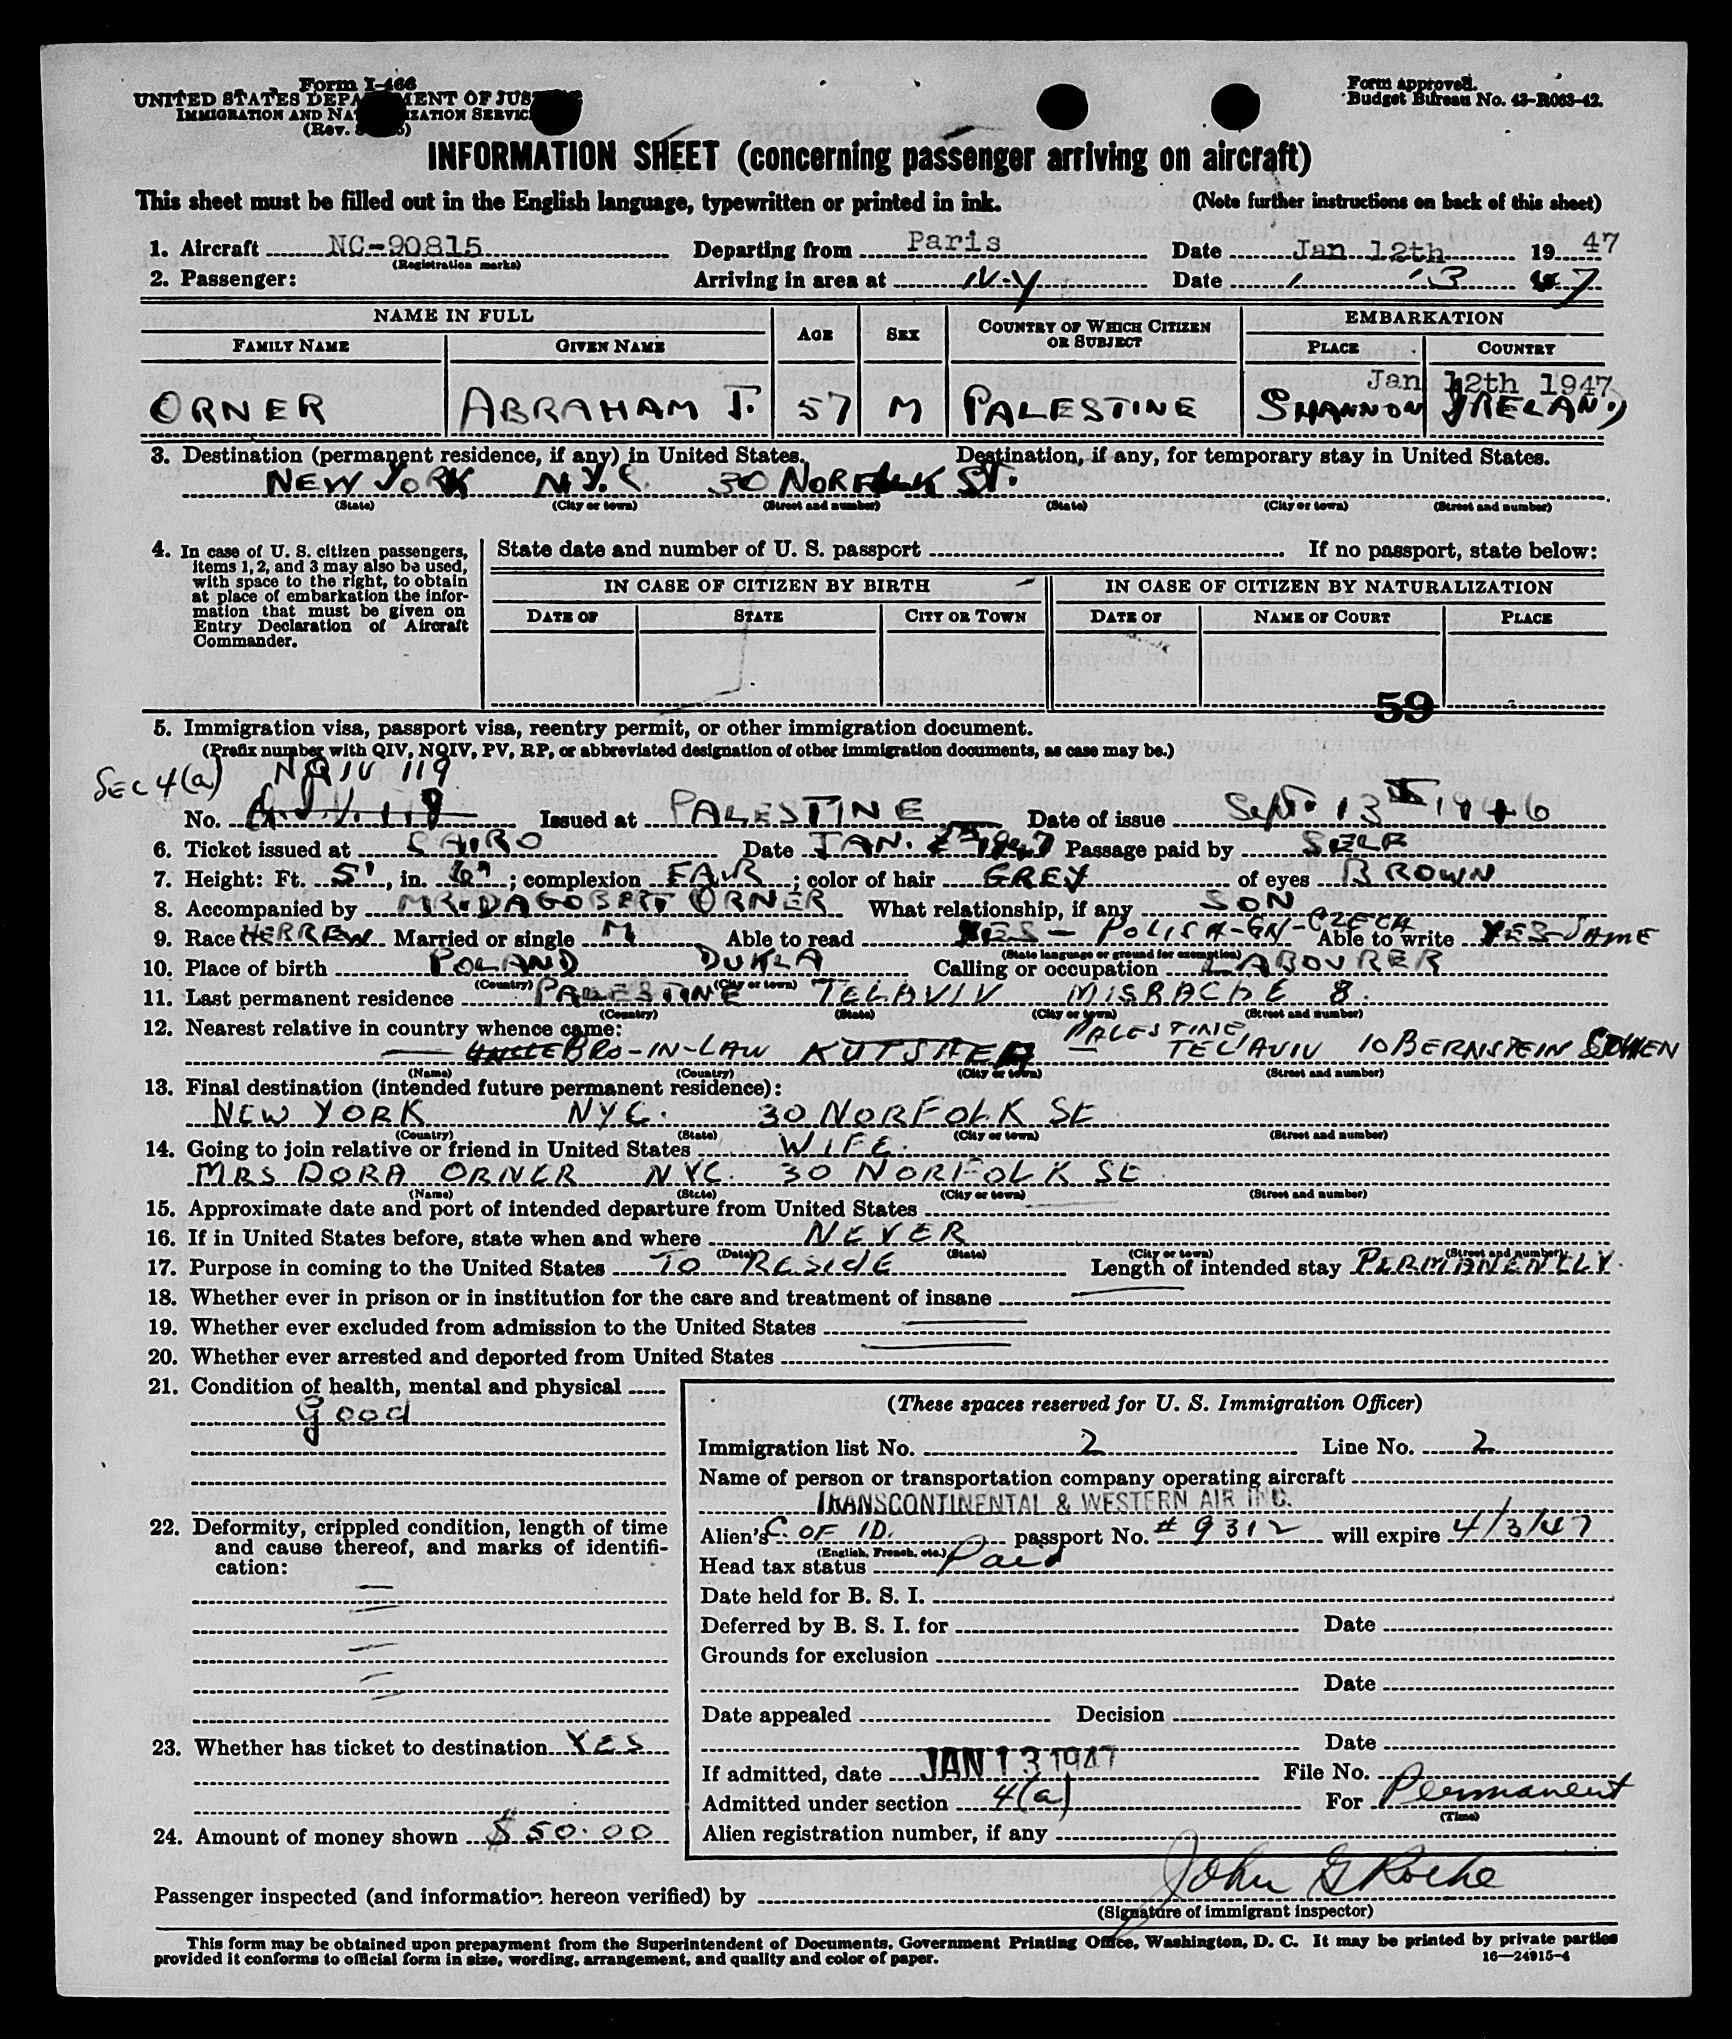 Form I-466
UNITED STATES DEPA MENT OF JUS
IMMIGRATION AND NA IZATION SERVIC
(Rev.
Form approved.
Budget Bureau No. 43-R063-42.
INFORMATION SHEET (concerning passenger arriving on aircraft)
This sheet must be filled out in the English language, typewritten or printed in ink. (Note further instructions on back of this sheet)
1. Aircraft NC-90815 Departing from Paris Date Jan 12th 19 47
(Registration marks)
2. Passenger: Arriving in area at N.Y Date 1 13 47
NAME IN FULL AGE SEX COUNTRY OF WHICH CITIZEN OR SUBJECT EMBARKATION
FAMILY NAME GIVEN NAME PLACE COUNTRY
Jan 12th 1947
ORNER ABRAHAM J. 57 M PALESTINE SHANNON IRELAND
3. Destination (permanent residence, if any) in United States. Destination, if any, for temporary stay in United States.
NEW YORK N.Y.C. 30 NORFOLK ST.
(State) (City or town) (Street and number) (State) (City or town) (Street and number)
4. In case of U. S. citizen passengers, items 1, 2, and 3 may also be used, with space to the right, to obtain at place of embarkation the information that must be given on Entry Declaration of Aircraft Commander.
State date and number of U. S. passport If no passport, state below:
IN CASE OF CITIZEN BY BIRTH IN CASE OF CITIZEN BY NATURALIZATION
DATE OF STATE CITY OR TOWN DATE OF NAME OF COURT PLACE
59
5. Immigration visa, passport visa, reentry permit, or other immigration document.
(Prefix number with QIV, NQIV, PV, RP, or abbreviated designation of other immigration documents, as case may be.)
SEC 4(a) NQIV 119
No. Issued at PALESTINE Date of issue Sept. 13 1946
6. Ticket issued at CAIRO Date JAN. 1947 Passage paid by SELF
7. Height: Ft. 5', in. 6"; complexion FAIR; color of hair GREY of eyes BROWN
8. Accompanied by MR. DAGOBERT ORNER What relationship, if any SON
9. Race HEBREW Married or single M Able to read YES - POLISH-GN-CZECH Able to write YES-SAME
(State language or ground for exemption)
10. Place of birth POLAND DUKLA Calling or occupation LABOURER
(Country) (City or town)
11. Last permanent residence PALESTINE TELAVIV MISRACHE 8.
(Country) (State) (City or town) (Street and number)
12. Nearest relative in country whence came: PALESTINE
UNCLE BRO-IN-LAW KUTSHER TEL'AVIV 10 BERNSTEIN COHEN
(Name) (Country) (City or town) (Street and number)
13. Final destination (intended future permanent residence):
NEW YORK NYC. 30 NORFOLK ST
(Country) (State) (City or town) (Street and number)
14. Going to join relative or friend in United States WIFE.
MRS DORA ORNER NYC. 30 NORFOLK ST
(Name) (State) (City or town) (Street and number)
15. Approximate date and port of intended departure from United States
16. If in United States before, state when and where NEVER
(Date) (State) (City or town) (Street and number)
17. Purpose in coming to the United States TO RESIDE Length of intended stay PERMANENTLY.
18. Whether ever in prison or in institution for the care and treatment of insane
19. Whether ever excluded from admission to the United States
20. Whether ever arrested and deported from United States
21. Condition of health, mental and physical
Good
22. Deformity, crippled condition, length of time and cause thereof, and marks of identification:
23. Whether has ticket to destination YES
24. Amount of money shown $50.00
(These spaces reserved for U. S. Immigration Officer)
Immigration list No. 2 Line No. 2
Name of person or transportation company operating aircraft
TRANSCONTINENTAL & WESTERN AIR INC.
Alien's C. OF ID. passport No. #9312 will expire 4/3/47
(English, French, etc.)
Head tax status Paid
Date held for B. S. I.
Deferred by B. S. I. for Date
Grounds for exclusion
Date
Date appealed Decision
Date
If admitted, date JAN 13 1947 File No.
Admitted under section 4(a) For Permanent
(Time)
Alien registration number, if any
Passenger inspected (and information hereon verified) by John G Roche
(Signature of immigrant inspector)
This form may be obtained upon prepayment from the Superintendent of Documents, Government Printing Office, Washington, D. C. It may be printed by private parties
provided it conforms to official form in size, wording, arrangement, and quality and color of paper. 16—24915-4